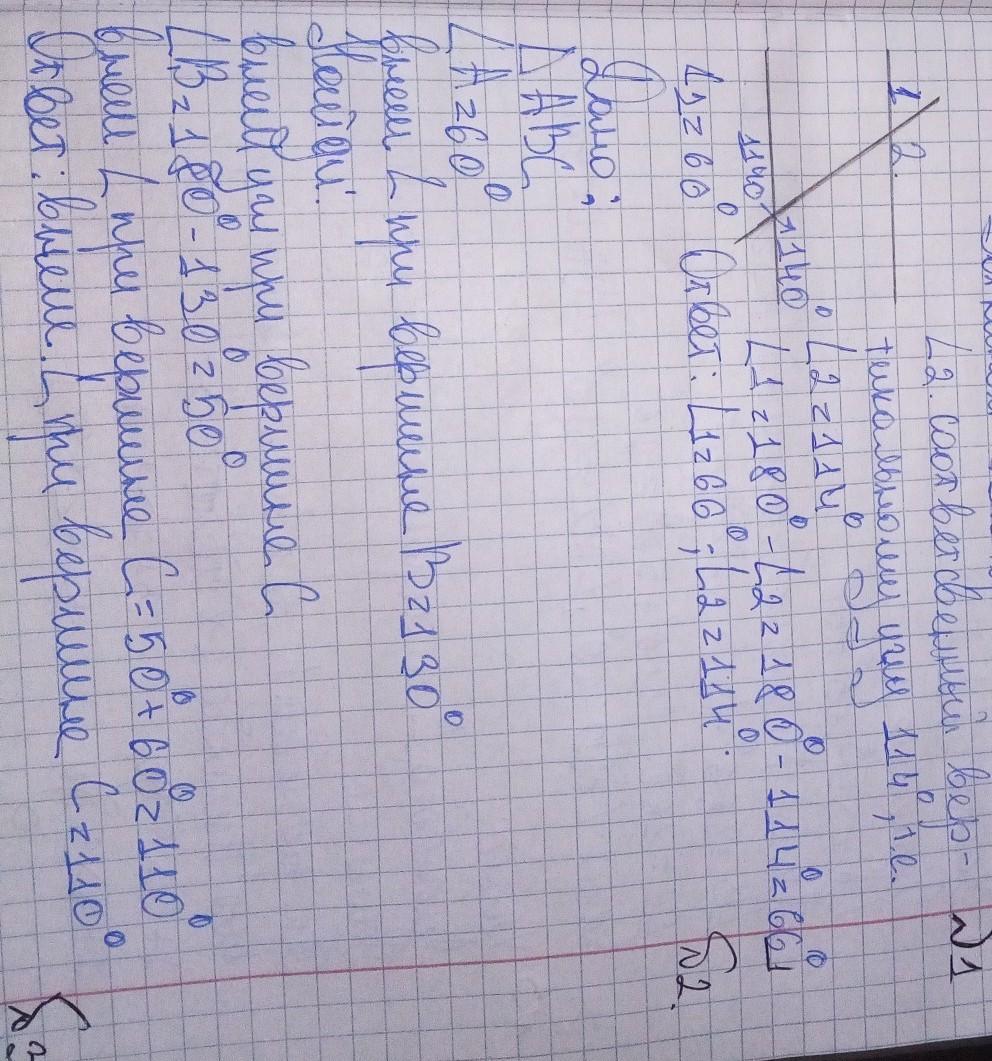 №1
∠2. соответственный вер-
тикальному углу 114°, т.е.
∠2=114°
∠1=180°-∠2=180°-114°=66°
∠1=66° Ответ: ∠1=66°; ∠2=114°.
1
2.
114°
114°
№2.
Дано:
△ABC
∠A=60°
внеш ∠ при вершине B=130°
Найди:
внеш угл при вершине C
∠B=180°-130°=50°
внеш ∠ при вершине C=50°+60°=110°
Ответ: внеш. ∠ при вершине C=110°